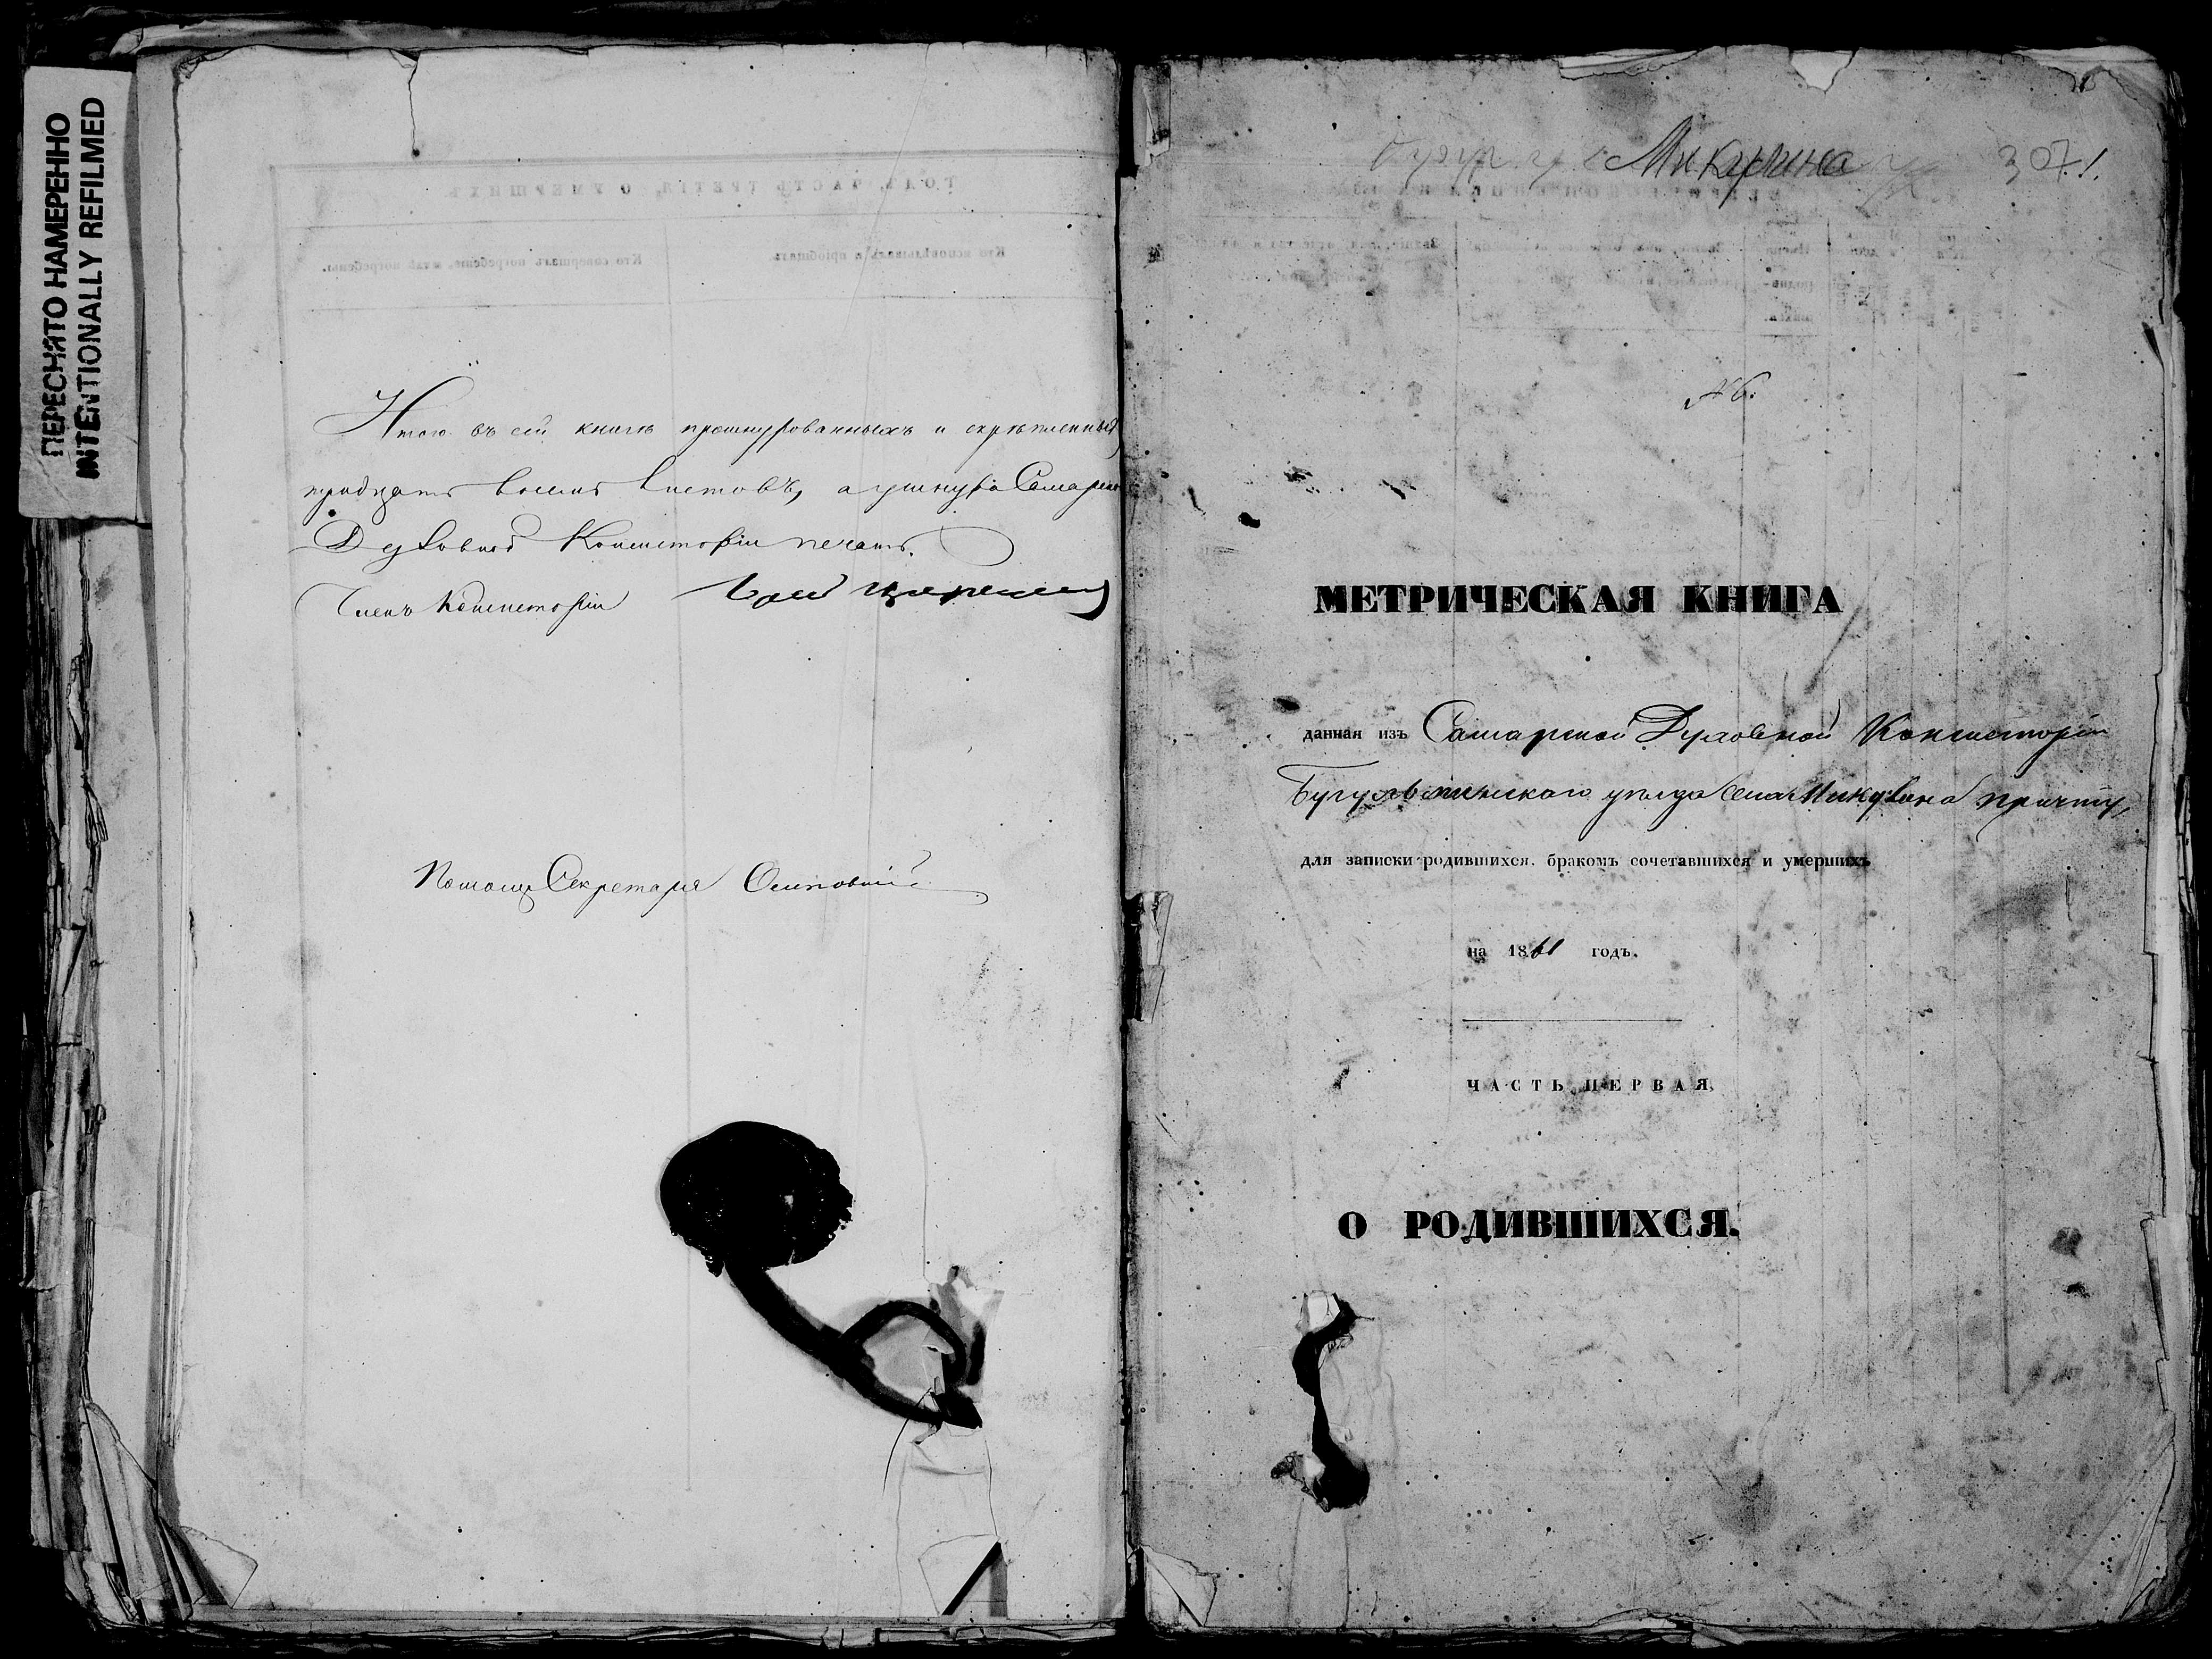 ПЕРЕСНЯТО НАМЕРЕННО
INTENTIONALLY REFILMED
Итого въ сей книгѣ прошнурованныхъ и скрѣпленныхъ
тридцать восемь листовъ, а у шнура Самарской
Духовной Консисторіи печать.
Членъ Консисторіи
Помощ. Секретаря
с. Микулина 307.1.
№ 6.
МЕТРИЧЕСКАЯ КНИГА
данная изъ Самарской Духовной Консисторіи
Бугульминскаго уѣзда села Микулина причту,
для записки родившихся, бракомъ сочетавшихся и умершихъ
на 1861 годъ.
ЧАСТЬ ПЕРВАЯ,
О РОДИВШИХСЯ.